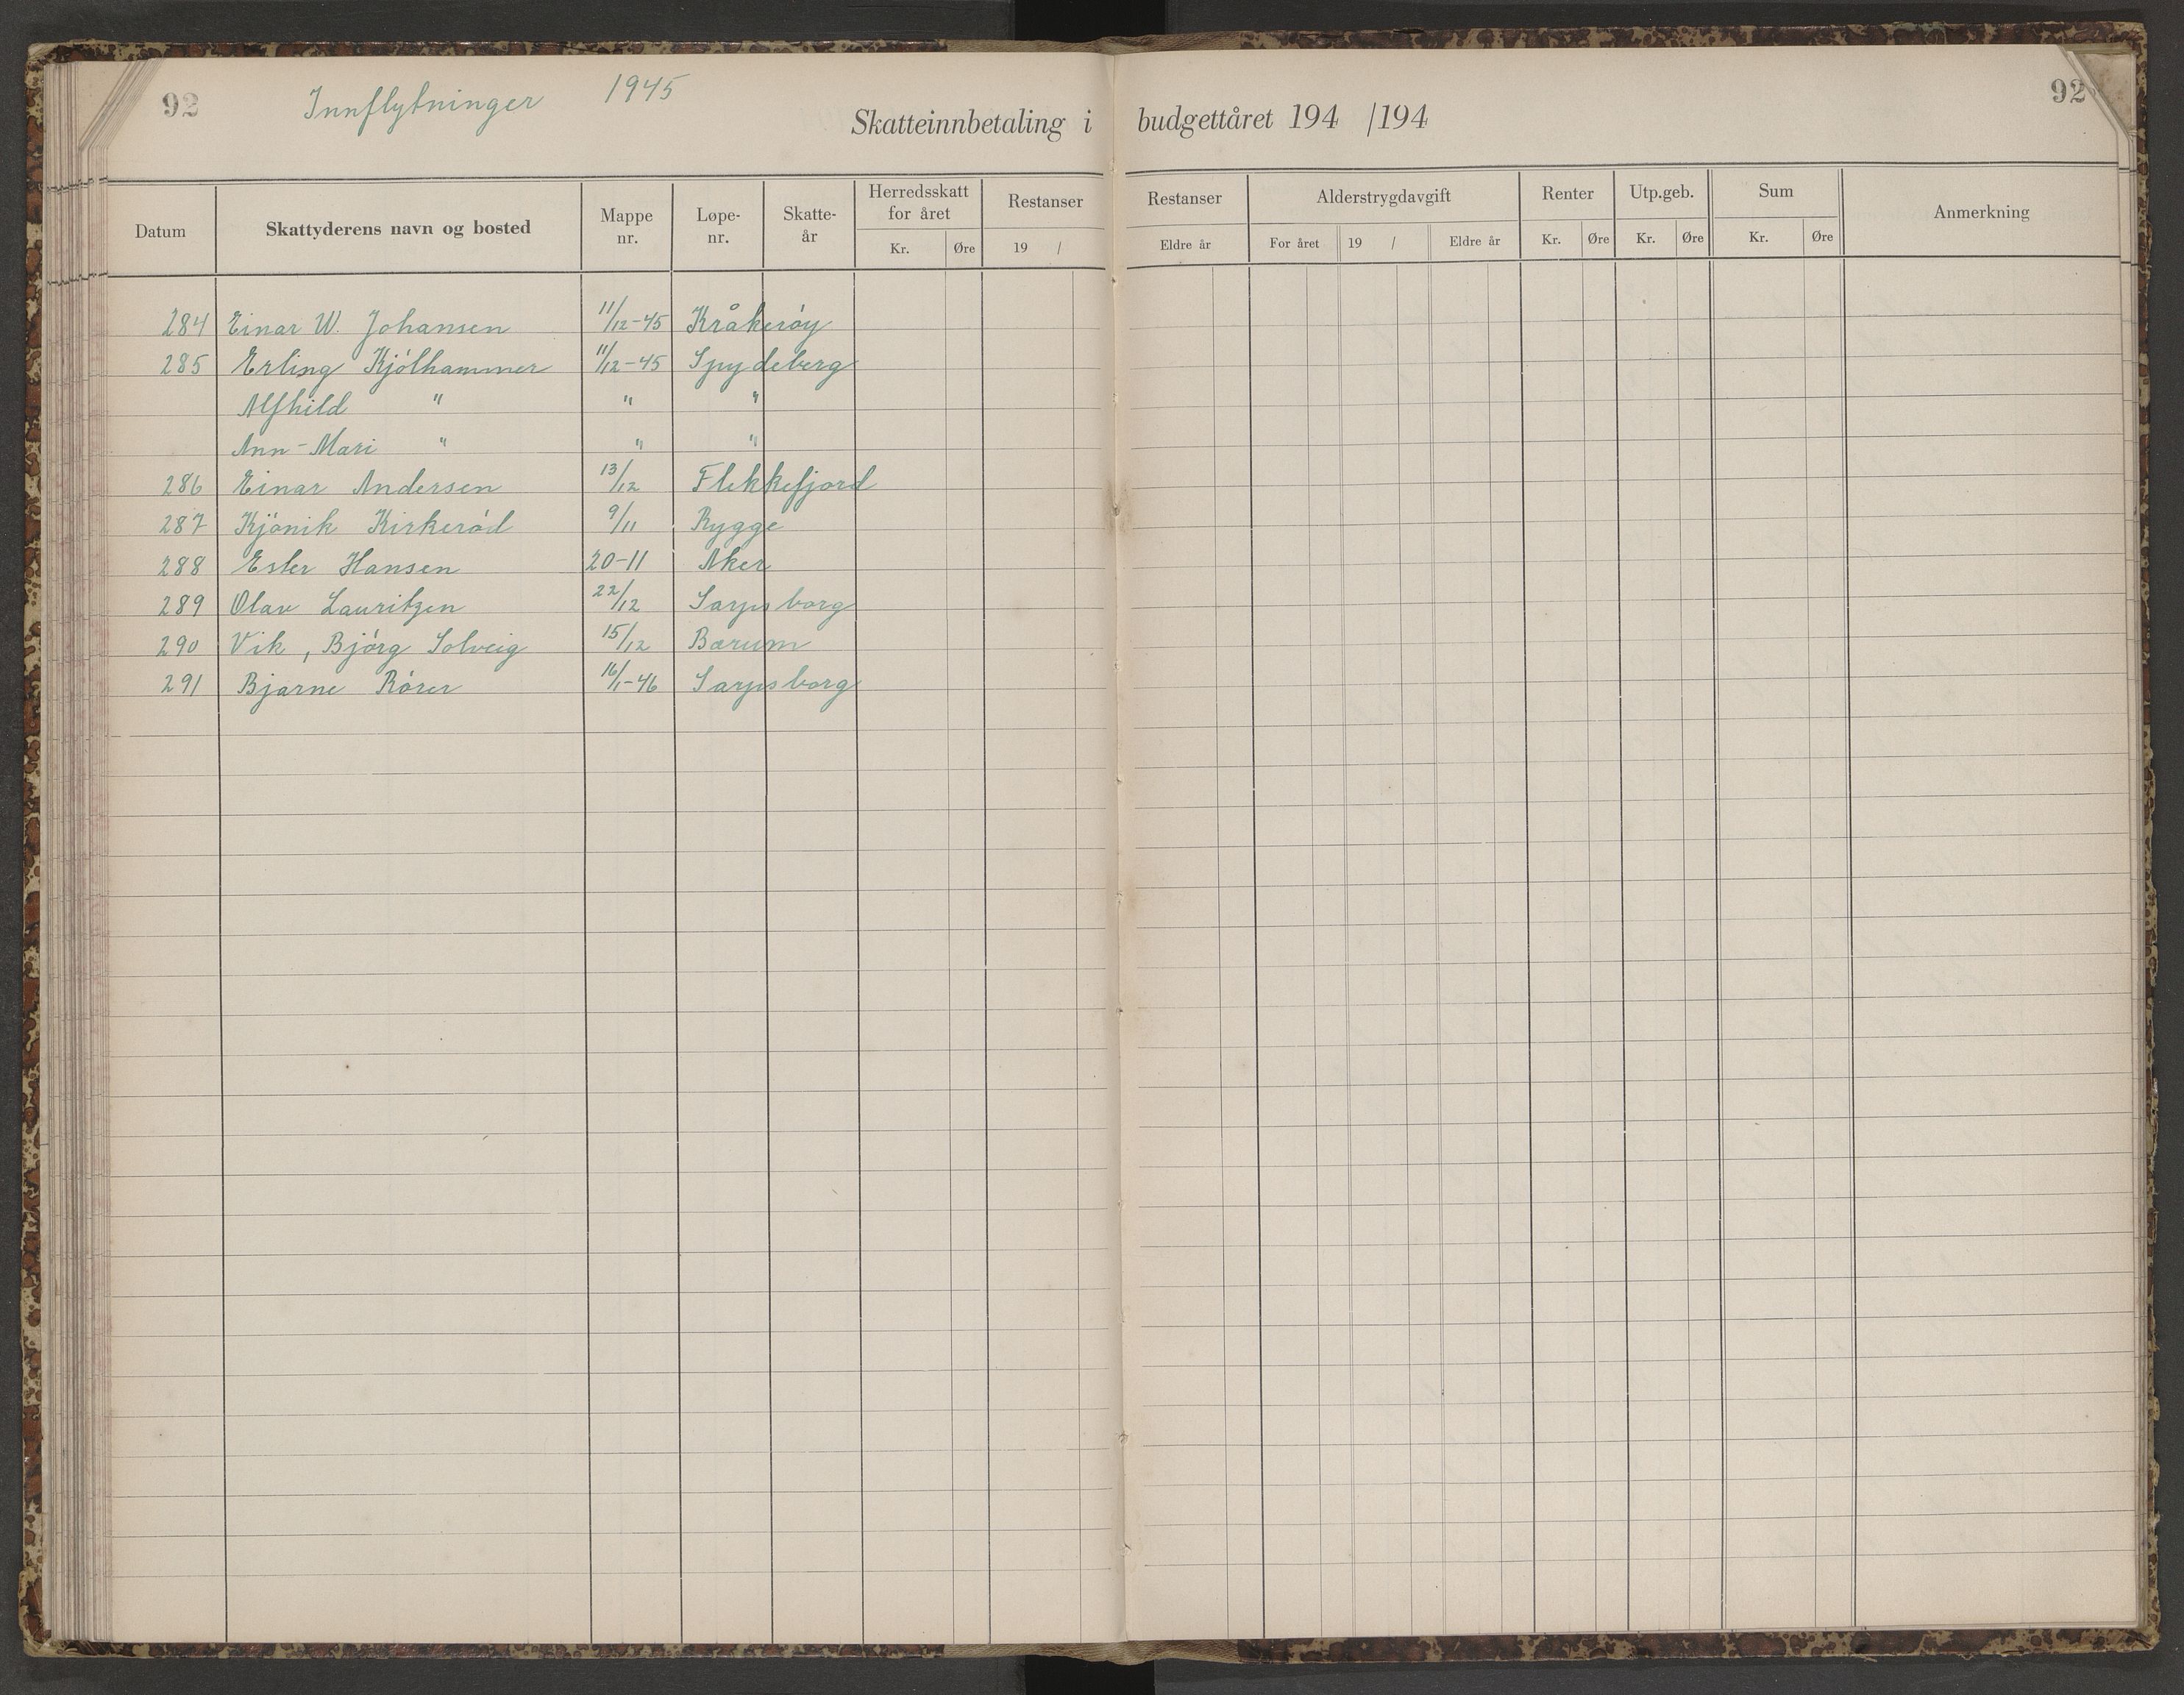 92 Innflytninger 1945 92
Skatteinnbetaling i budgettåret 194 /194
Datum Skattyderens navn og bosted Mappe nr. Løpe- nr. Skatte- år Herredsskatt for året Kr. Øre Restanser 19 / Restanser Eldre år Alderstrygdavgift For året 19 / Eldre år Renter Kr. Øre Utp.geb. Kr. Øre Sum Kr. Øre Anmerkning
284 Einar W. Johansen 11/12-45 Kråkerøy
285 Erling Kjølhammer 11/12-45 Spydeberg
Alfhild " " "
Ann-Mari " " "
286 Einar Andersen 13/12 Flekkefjord
287 Kjønik Kirkerød 9/11 Rygge
288 Ester Hansen 20-11 Aker
289 Olav Lauritzen 22/12 Sarpsborg
290 Vik, Bjørg Solveig 15/12 Bærum
291 Bjarne Rörer 16/1-46 Sarpsborg